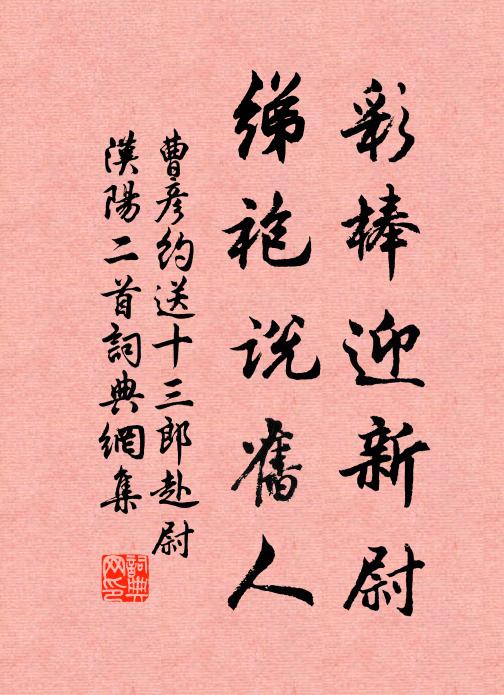 彩棒迎新尉
绨袍说舊人
曹彦约送十三郎赴尉
漢陽二首詞典網集
詞典網印